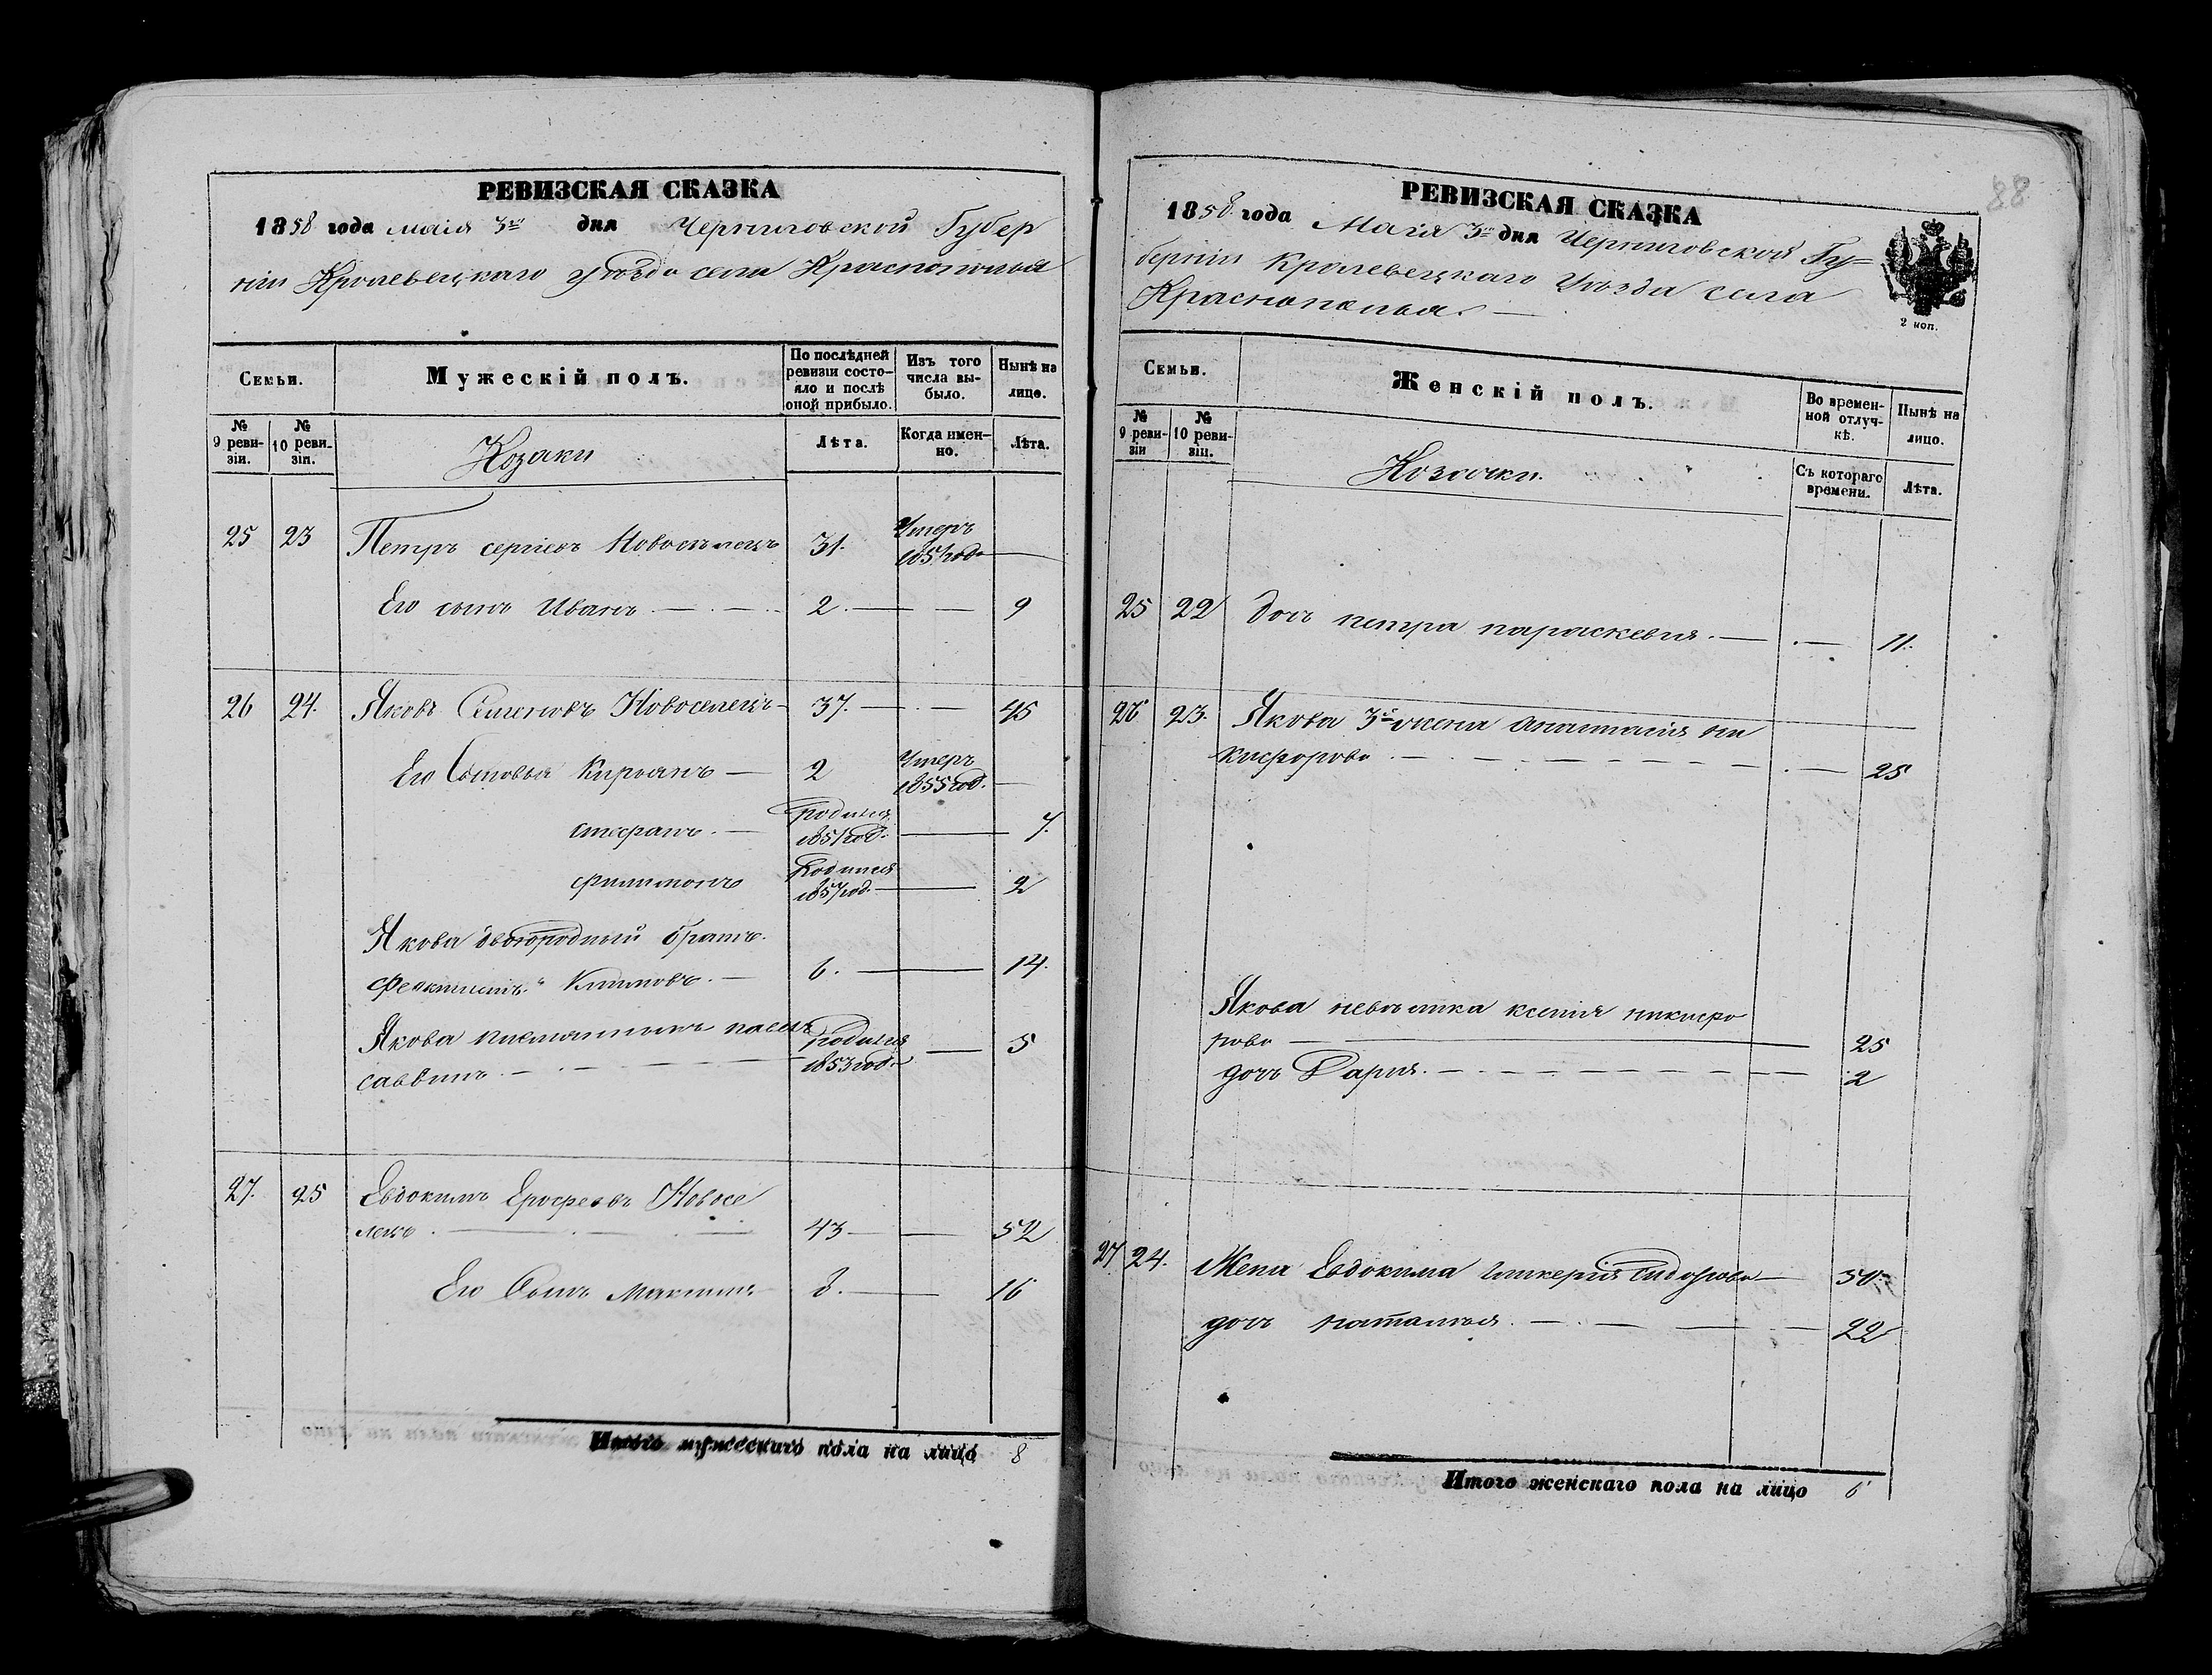 РЕВИЗСКАЯ СКАЗКА
1858 года маія 3го дня Черниговской Губер
ніи Кролевецкаго уѣзда села Краснополья
Семьи.
Мужескій полъ.
По послѣдней ревизіи состояло и послѣ оной прибыло.
Изъ того числа выбыло.
Нынѣ на лицо.
№ 9 ревизіи.
№ 10 ревизіи.
Козаки
Лѣта.
Когда именно.
Лѣта.
25 23 Петръ сергіевъ Новоселецъ 31. Умеръ 1851 год
Его сынъ Иванъ 2. 9
26 24. Яковъ Семеновъ Новоселецъ 37. 45
Его Сыновья Кирьанъ 2 Умеръ 1855 год.
стефанъ. Родился 1851 год. 7.
филимонъ Родился 1857 год. 2
Якова двогородный братъ.
Феоктистъ Климовъ. 6. 14.
Якова племянникъ
саввинъ Родился 1853 год. 5
27. 25 Евдокимъ Ерофеевъ Новосе
лецъ 43 52
Его Сынъ Максимъ 8. 16
Итого мужескаго пола на лицо 8
88
РЕВИЗСКАЯ СКАЗКА
1858 года Маія 3го дня Черниговской Гу=
берніи Кролевецкаго Уѣзда села
Краснополья.
2 коп.
Семьи.
Женскій полъ.
Во временной отлучкѣ.
Нынѣ на лицо.
№ 9 ревизіи
№ 10 ревизіи.
Козачки.
Съ котораго времени.
Лѣта.
25 22 дочь петра параскевия. 11.
26 23. Якова 3я жена анастасія ни
кифорова 25
Якова невѣстка ксенія никифо
рова 25
дочь Дарья. 2
27 24. Жена Евдокима гликерія Сидорова 50
дочь наталья. 22
Итого женскаго пола на лицо 6